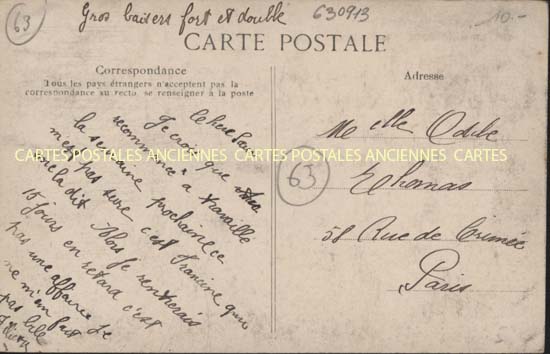 63
Gros baisers fort et doublé
630913
10.-
CARTE POSTALE
Correspondance
Tous les pays étrangers n'acceptent pas la
correspondance au recto, se renseigner à la poste
Adresse
Je crois que
recommence à travaillé
la semaine prochaine ce
m'est pas sure c'est Francine que
me la dit Alors je rentrerais
15 jours en retard c'est
pas une affaire Je
ne m'en fait
pas bile
CARTES POSTALES ANCIENNES CARTES POSTALES ANCIENNES CARTES
Melle Odile
63
Thomas
58 Rue de Crimée
Paris